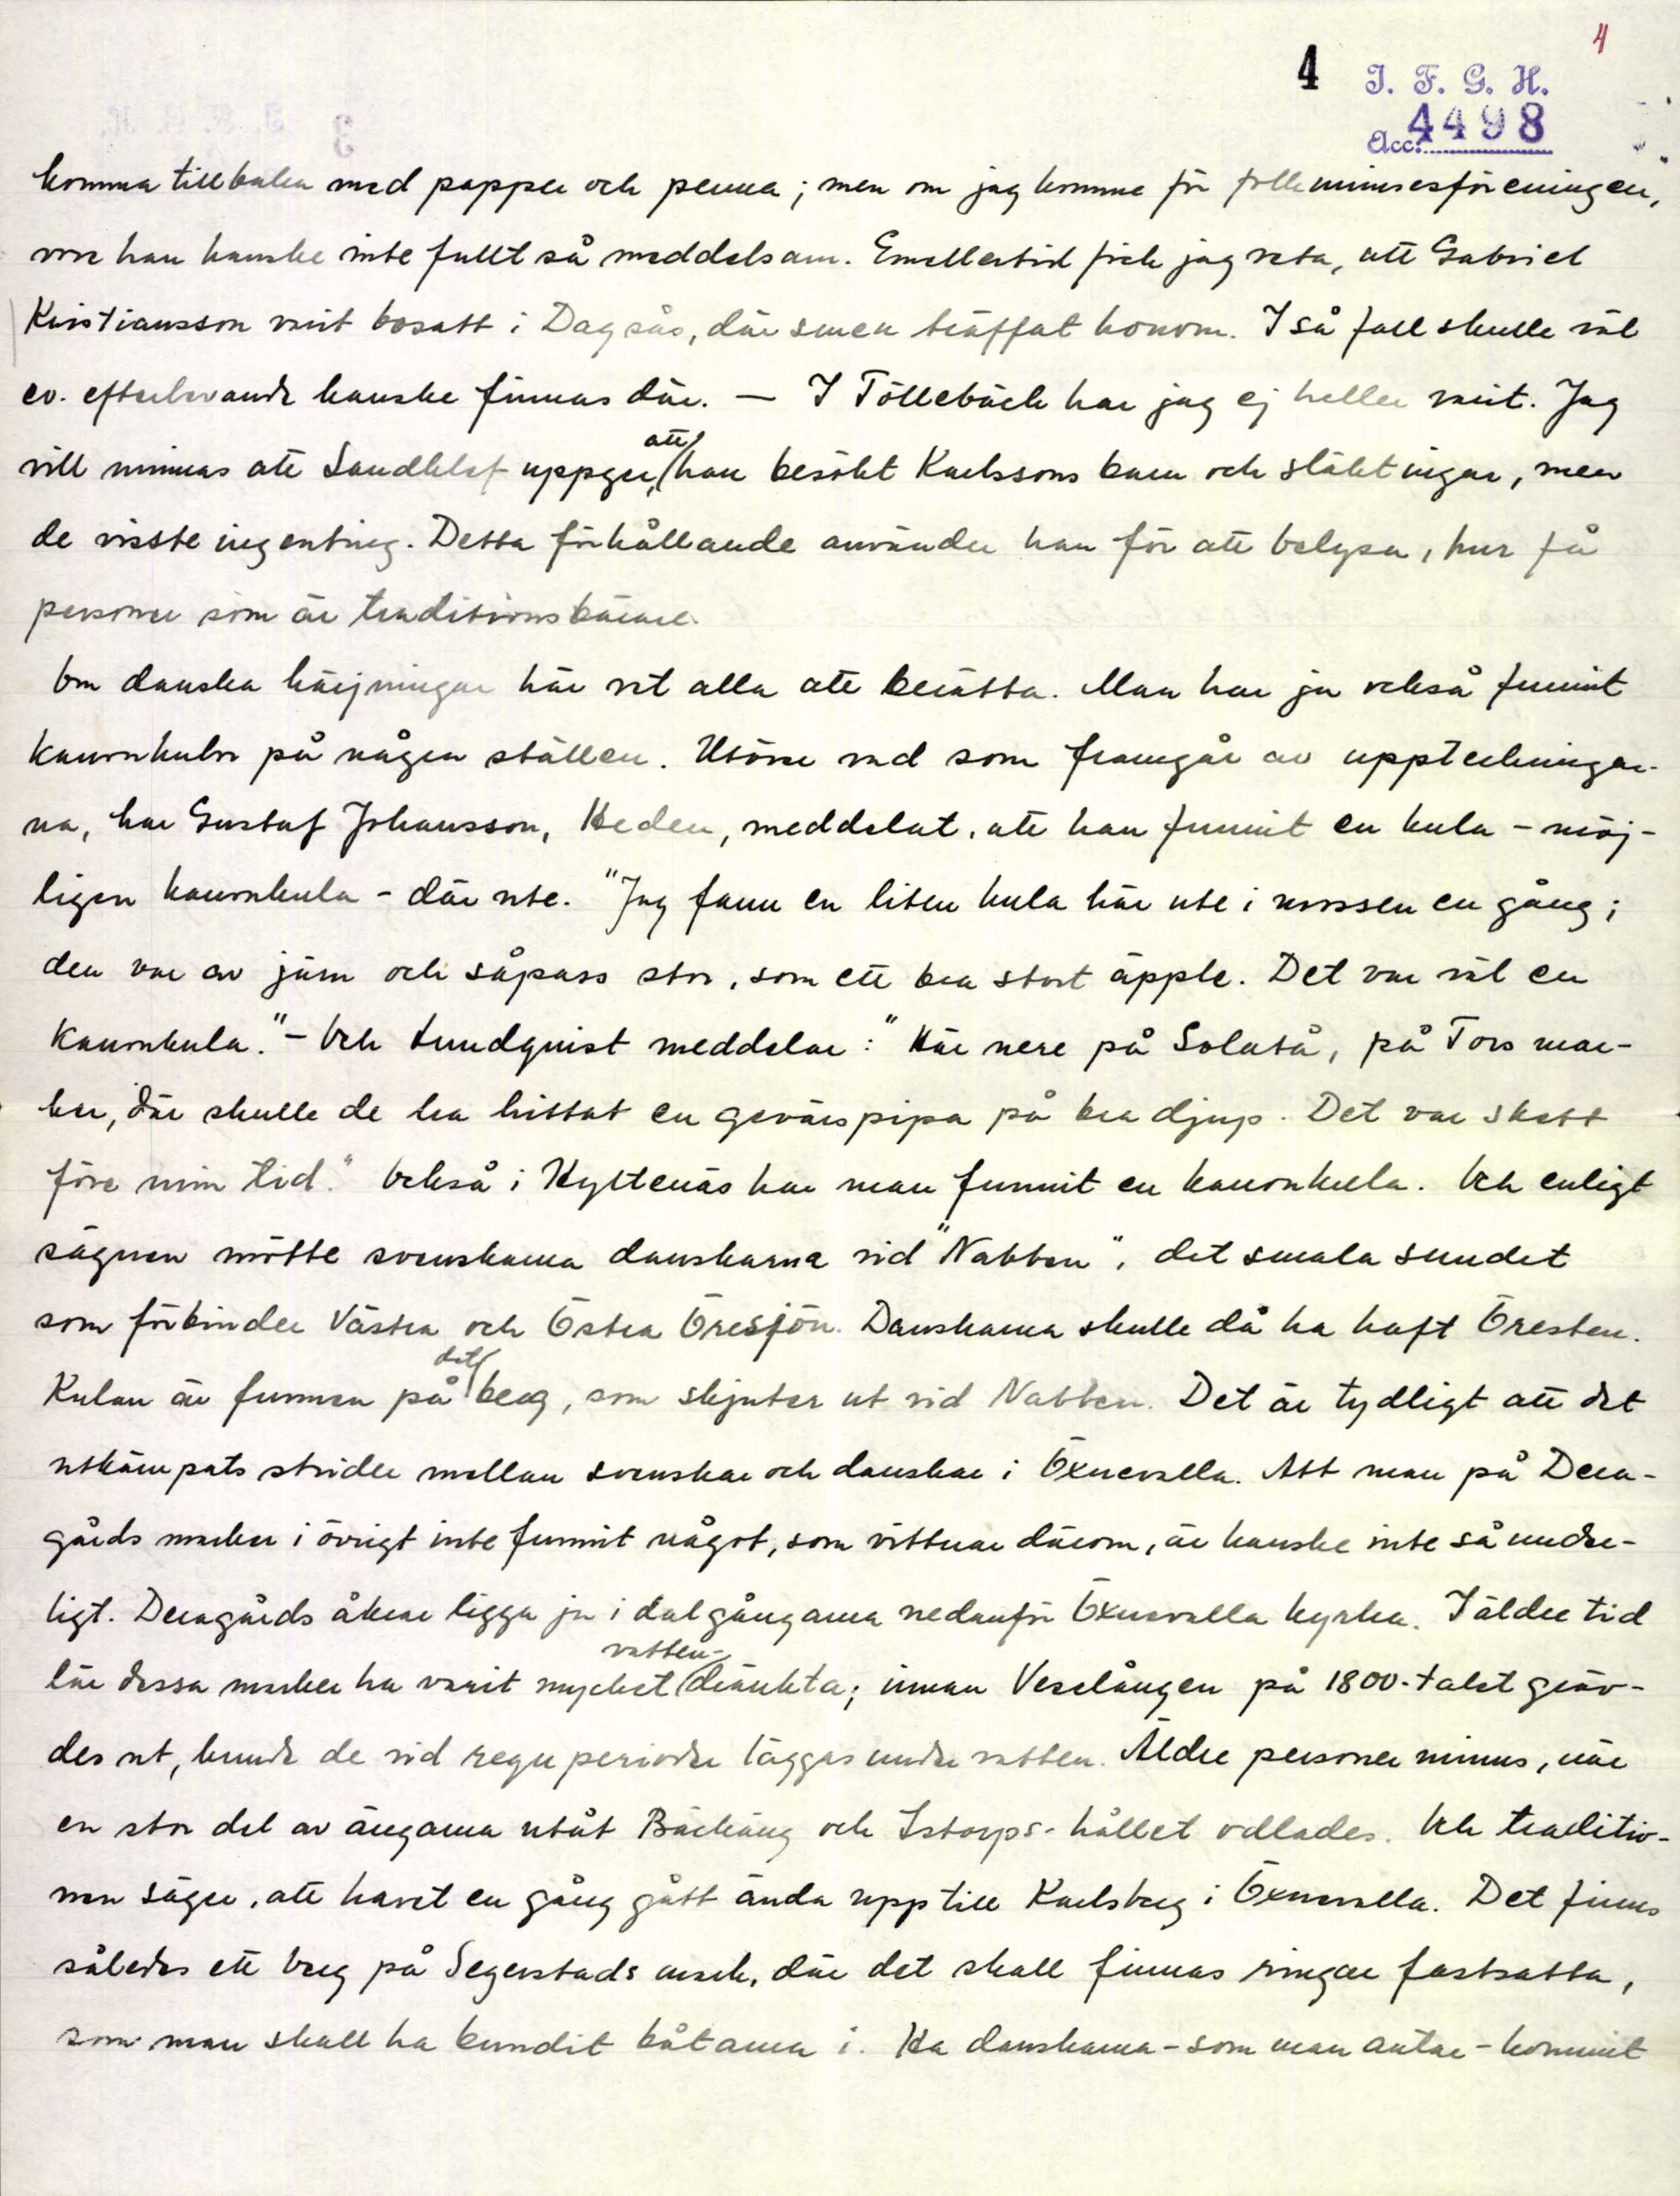 4
4 I. F. G. H.
Acc: 4498
komma tillbaka med papper och penna; men om jag komme för folkminnesföreningen,
vore han kanske inte fullt så meddelsam. Emellertid fick jag veta, att Gabriel
Kristiansson varit bosatt i Dagsås, där smen träffat honom. I så fall skulle väl
ev. efterlevande kanske finnas där. — I Töllebäck har jag ej heller varit. Jag
vill minnas att Sandklef uppger, att han besökt Karlssons barn och släktingar, men
de visste ingenting. Detta förhållande använder han för att belysa, hur få
personer som är traditionsbärare.
Om danska härjningar här vet alla att berätta. Man har ju också funnit
kanonkulor på någon ställen. Utöver vad som framgår av uppteckningar-
na, har Gustaf Johansson, Heden, meddelat, att han funnit en kula - möj-
ligen kanonkula - där ute. "Jag fann en liten kula här ute i mossen en gång;
den var av järn och såpass stor, som ett bra stort äpple. Det var väl en
kanonkula." - Och Lundquist meddelar: "Här nere på Solatå, på Tors mar-
ker, där skulle de ha hittat en gevärspipa på bra djup. Det var skett
före min tid." Också i Hyltenäs har man funnit en kanonkula. Och enligt
sägnen mötte svenskarna danskarna vid "Nabben", det smala sundet
som förbinder Västra och Östra Öresjön. Danskarna skulle då ha haft Öresten.
Kulan är funnen på det berg, som skjuter ut vid Nabben. Det är tydligt att det
utkämpats strider mellan svenskar och danskar i Öxnevalla. Att man på Dera-
gårds marker i övrigt inte funnit något, som vittnar därom, är kanske inte så under-
ligt. Deragårds åkrar ligga ju i dalgångarna nedanför Öxnevalla kyrka. I äldre tid
lär dessa marker ha varit mycket vatten-dränkta; innan Veselången på 1800-talet gräv-
des ut, kunde de vid regnperioder läggas under vatten. Äldre personer minns, när
en stor del av ängarna utåt Bäckäng och Istorps-hållet odlades. Och traditio-
nen säger, att havet en gång gått ända upp till Karlsberg i Öxnevalla. Det finns
således ett berg på Segerstads mark, där det skall finnas ringar fastsatta,
som man skall ha bundit båtarna i. Ha danskarna - som man antar - kommit